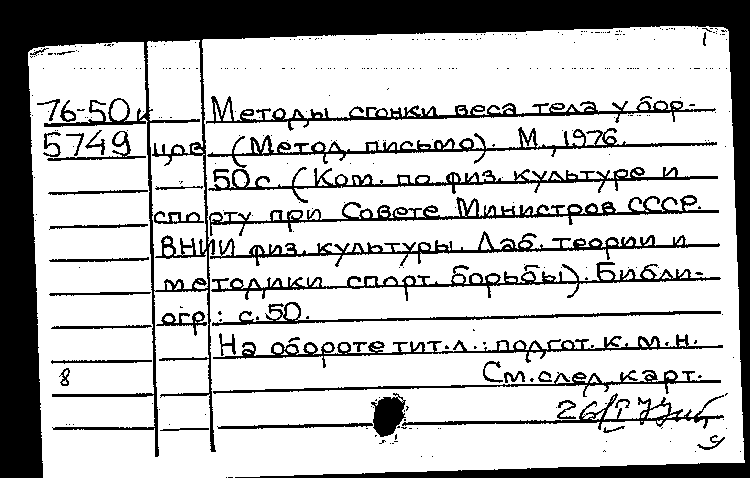 1
76-50к Методы сгонки веса тела у бор-
5749 цов. (Метод. письмо). М., 1976.
50с. (Ком. по физ. культуре и
спорту при Совете Министров СССР.
ВНИИ физ. культуры. Лаб. теории и
методики спорт. борьбы). Библи-
огр.: с.50.
На обороте тит.л.: подгот. к.м.н.
8 См.след.карт.
26/I 77